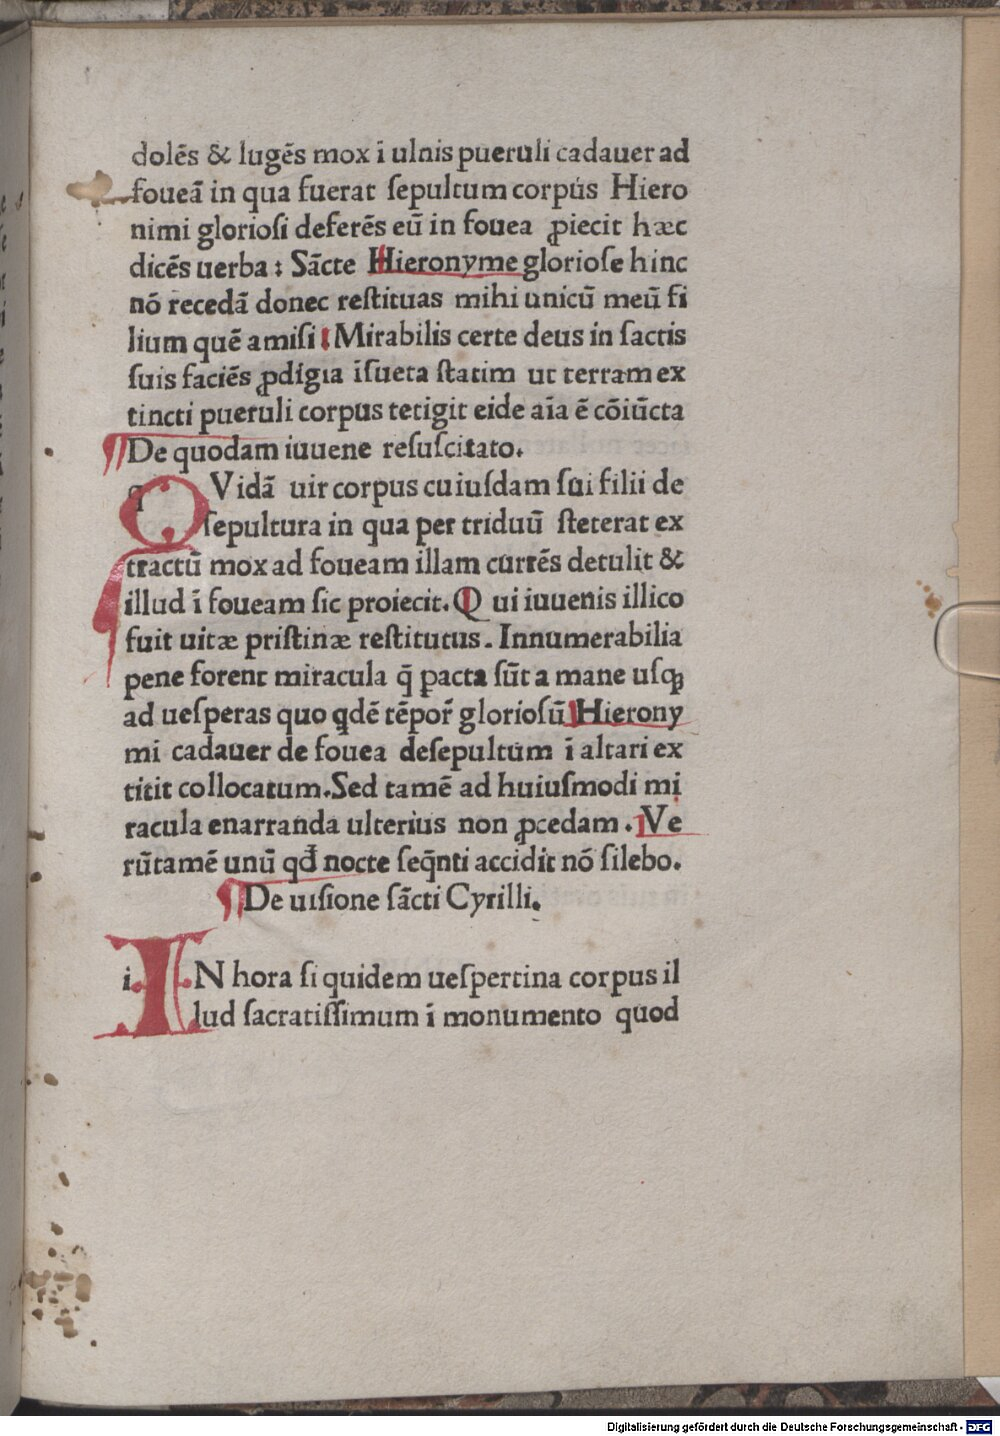 dolēs & lugēs mox ī ulnis pueruli cadauer ad
foueā in qua fuerat ſepultum corpus Hiero
nimi glorioſi deferēs eū in fouea ꝓiecit hæc
dicēs uerba : Sācte Hieronyme glorioſe hinc
nō recedā donec reſtituas mihi unicū meū fi
lium quē amiſi Mirabilis certe deus in ſactis
ſuis faciēs ꝓdigia īſueta ſtatim ut terram ex
tincti pueruli corpus tetigit eide aīa ē cōiūcta
¶ De quodam iuuene reſuſcitato.
q QVidā uir corpus cuiuſdam ſui filii de
ſepultura in qua per triduū ſteterat ex
tractū mox ad foueam illam currēs detulit &
illud ī foueam ſic proiecit. Qui iuuenis illico
fuit uitæ priſtinæ reſtitutus. Innumerabilia
pene forent miracula q̄ pacta ſūt a mane uſqꝫ
ad ueſperas quo qdē tēpoꝝ glorioſū Hierony
mi cadauer de fouea deſepultum ī altari ex
titit collocatum. Sed tamē ad huiuſmodi mi
racula enarranda ulterius non ꝓcedam. Ve
rūtamē unū qđ nocte ſeq̄nti accidit nō ſilebo.
¶ De uiſione ſācti Cyrilli.
i IN hora ſi quidem ueſpertina corpus il
lud ſacratiſſimum ī monumento quod
Digitalisierung gefördert durch die Deutsche Forschungsgemeinschaft - DFG